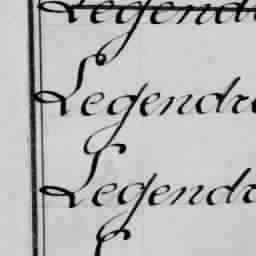 Legendr
Legendre
Legendr